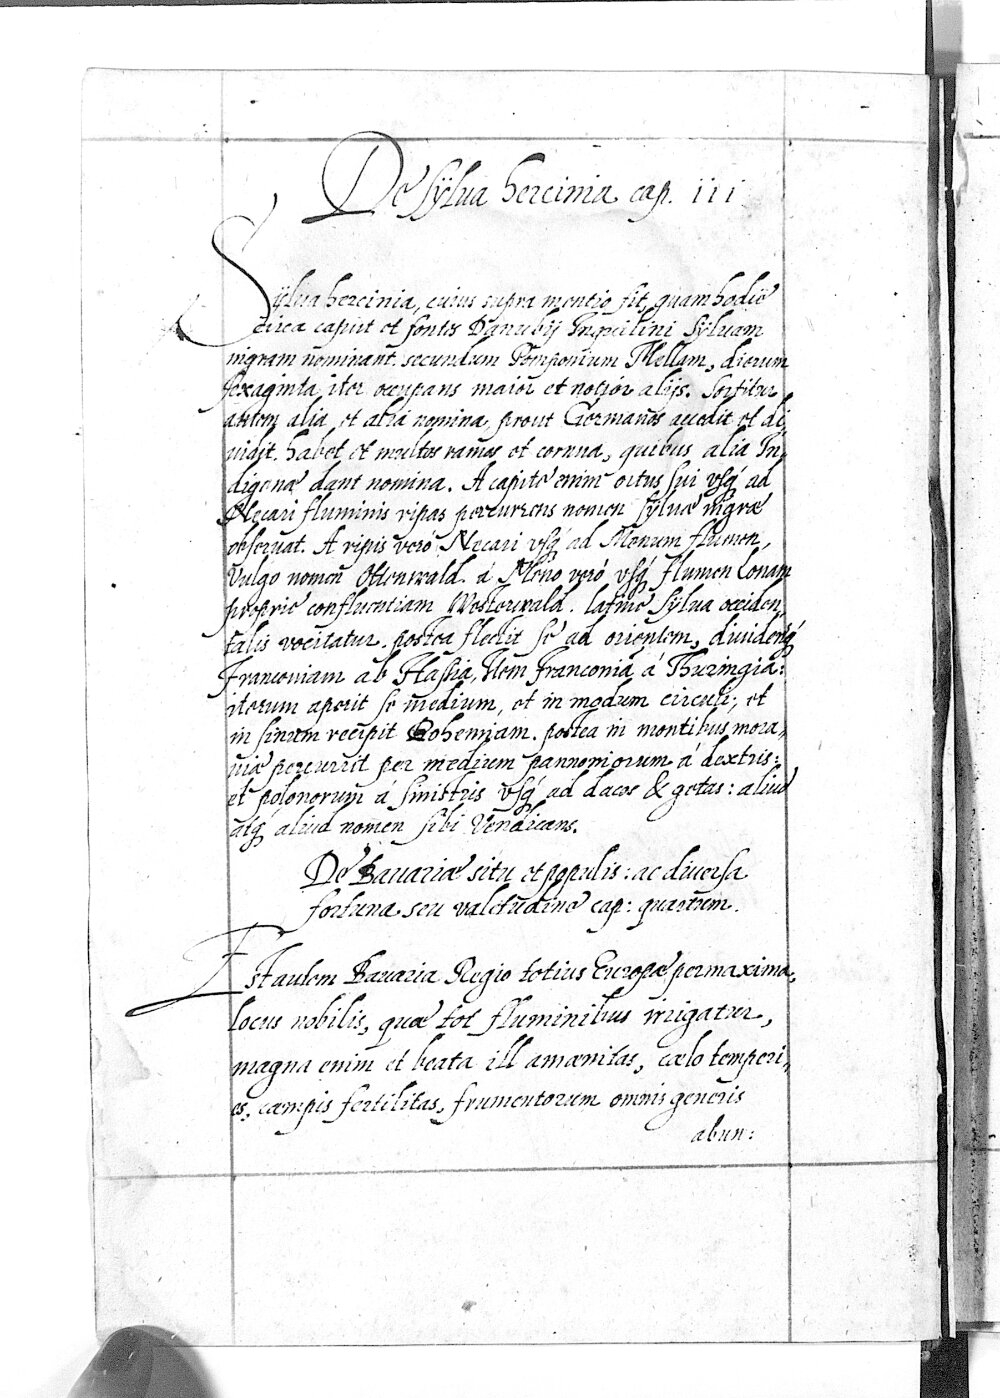 De sylua hercinia cap. iii
Sylua hercinia, cuius supra mentio fit, quam hodie
circa caput et fontes Danubij Inquilini Syluam
nigram nominant. secundum Pomponium Mellam, dierum
sexaginta iter occupans maior et notior alijs. Sortitur
autem alia et alia nomina, prout Germanos accedit et di,
uidit. habet et multos ramos et cornua, quibus alia In,
digenæ dant nomina. A capite enim ortus sui vsq́ ad
Necari fluminis ripas percurrens nomen syluæ nigræ
obseruat. A ripis vero Necari vsq́ ad Monum flumen,
Vulgo nomen Ottenwald. á Meno veró vsq́ flumen Conam
proprie confluentiam Westerwald. latine Sylua occiden,
talis vocitatur. postea flectit se ad orientem, diuidensq́
Franconiam ab Hassia, Item Franconiã á Thuringia:
iterum aperit se medium, et in modum circuli, et
in sinum recipit Bohemiam. postea in montibus mora,
uiæ percurrit per medium pannoniorum á dextris:
et polonorum á sinistris vsq́ ad dacos & getas: aliud
atq́ aliud nomen sibi Vendicans.
De Bauariæ situ et populis: ac diuersa
fortuna seu valitudine cap: quartum.
Est autem Bauaria Regio totius Europæ permaxima,
locus nobilis, quæ tot fluminibus irrigatur,
magna enim et beata ill amœnitas, cælo temperi,
es, campis fertilitas, frumentorum omnis generis
abun: